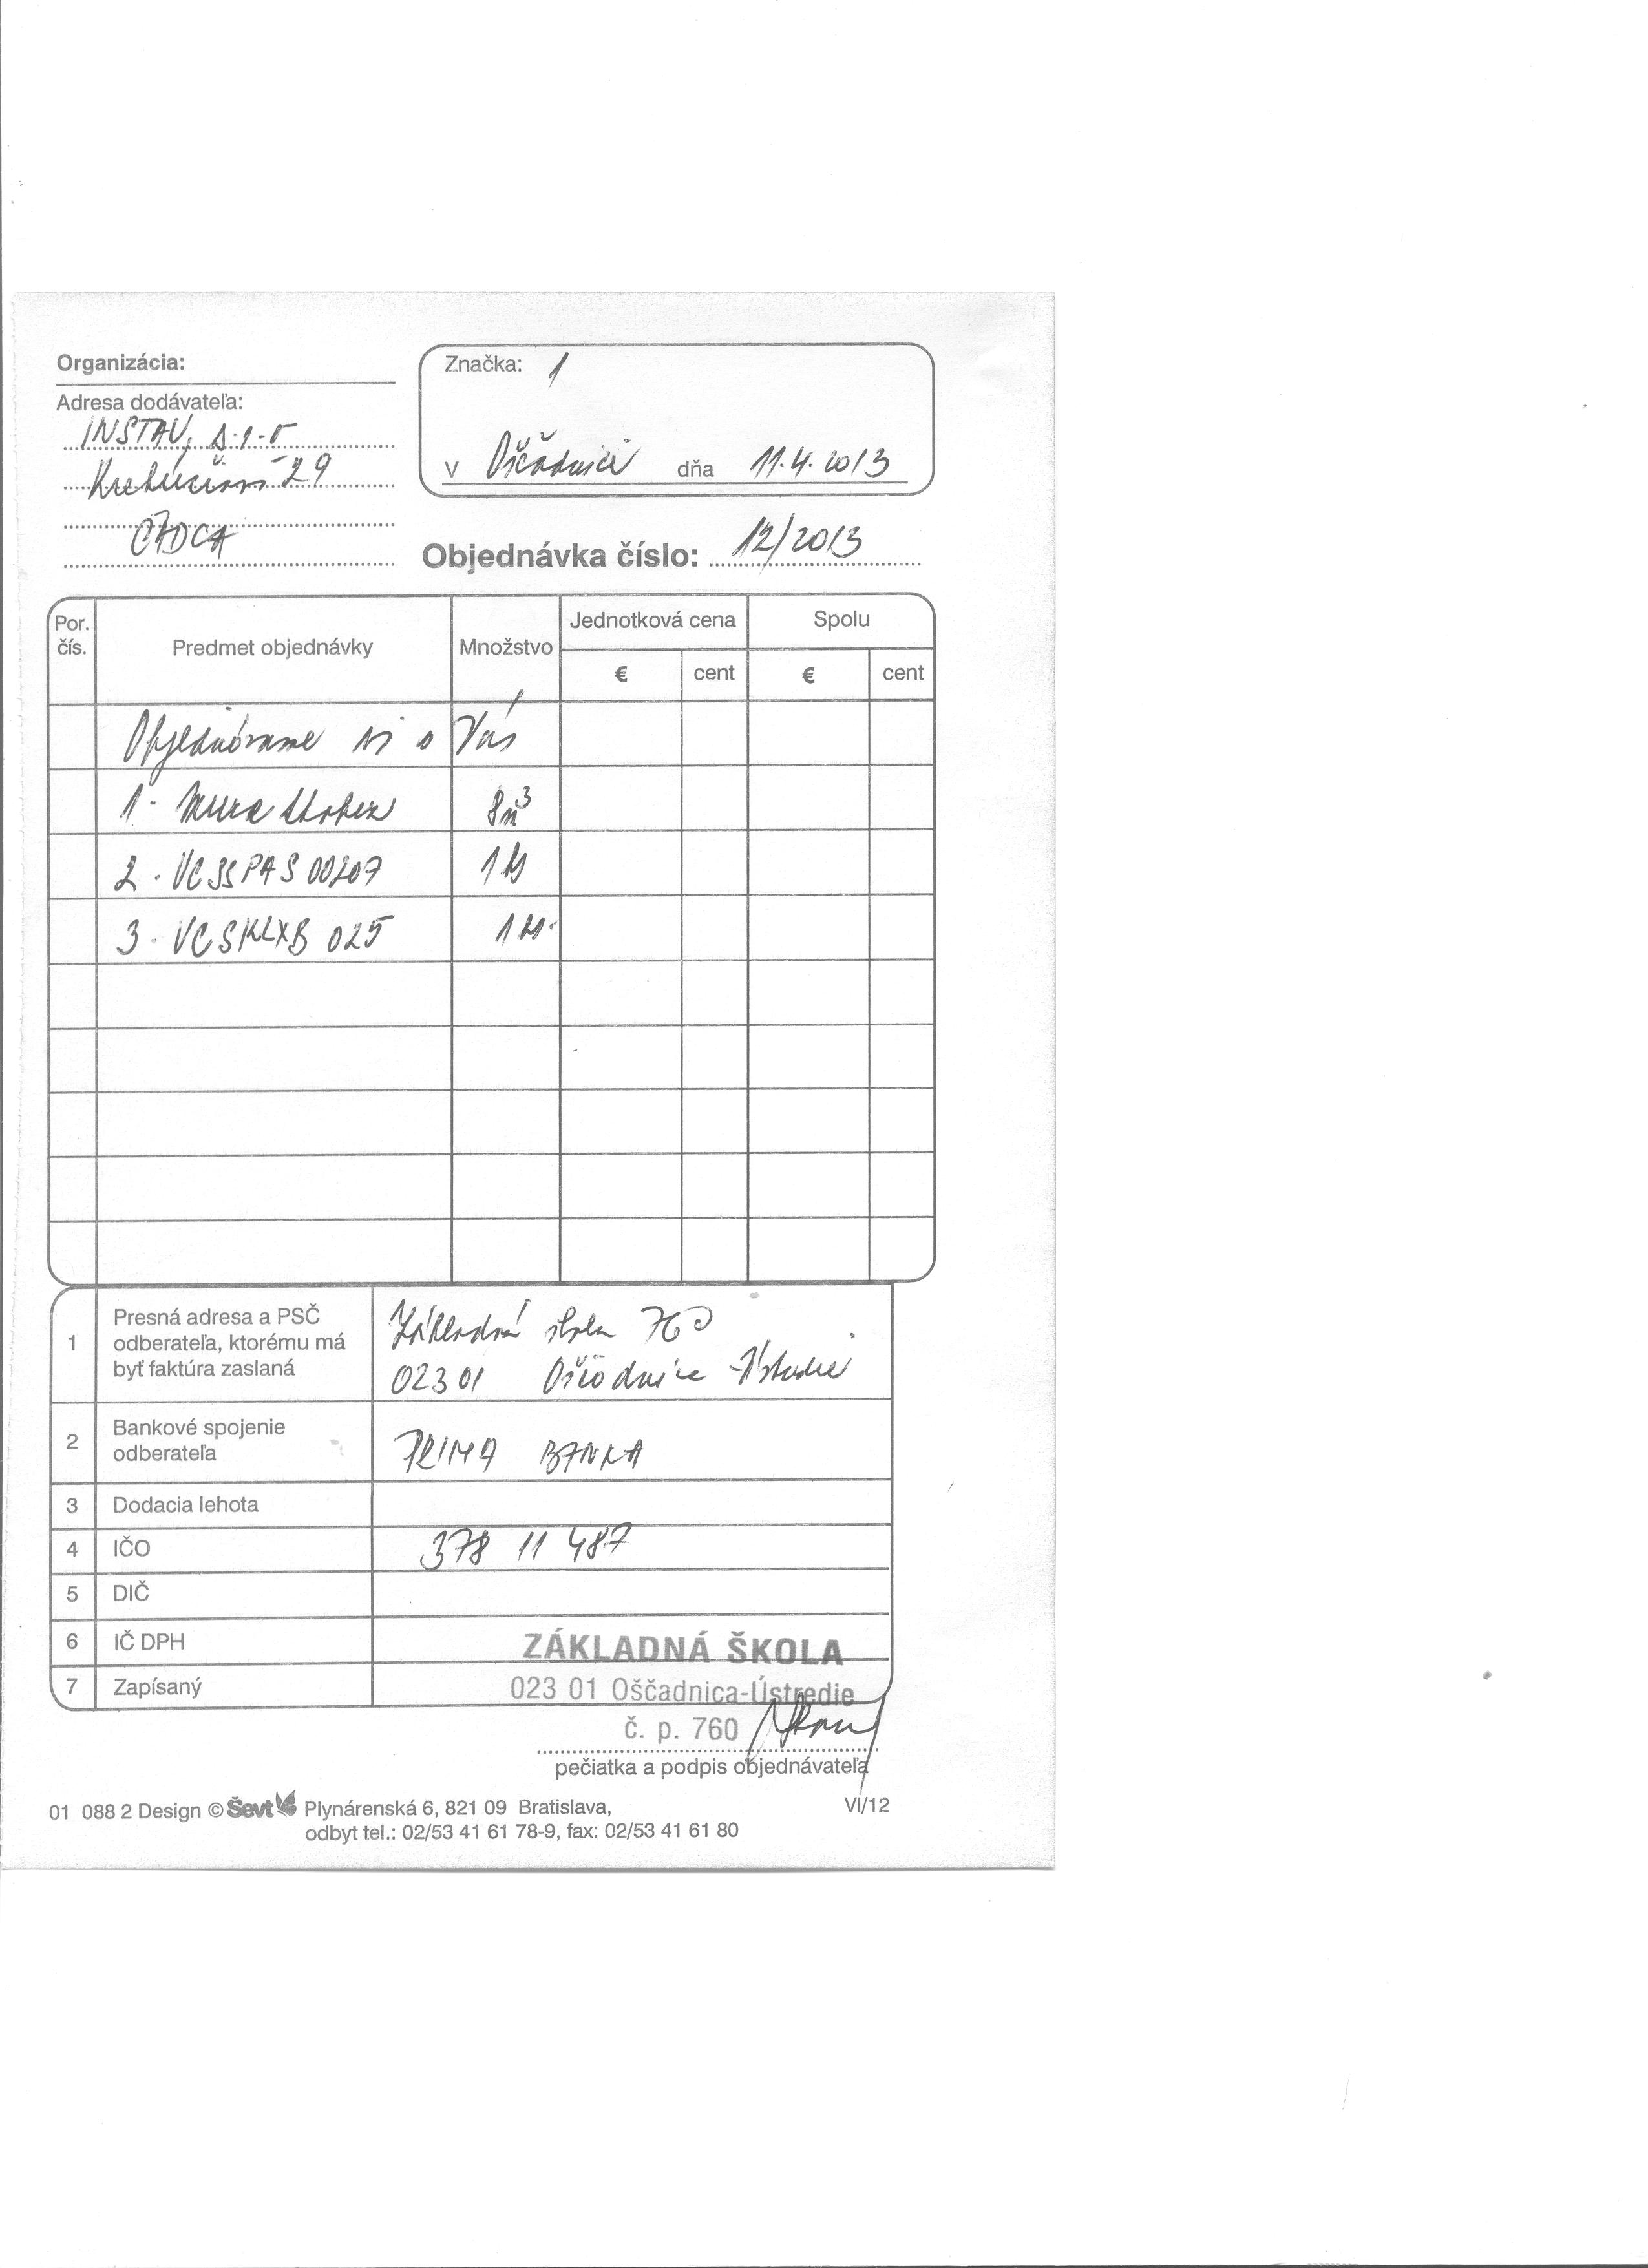 Organizácia:
Adresa dodávateľa:
INSTAV, s.r.o
29
ČADCA
Značka: 1
v Oščadnici dňa 11.4.2013
Objednávka číslo: 12/2013
Por. čís.
Predmet objednávky
Množstvo
Jednotková cena
Spolu
€ cent € cent
Objednávame si u Vás
1. 8m³
2. VCSSPAS00207 1 ks
3. VCSKLXB 025 1 ks
1 Presná adresa a PSČ
odberateľa, ktorému má
byť faktúra zaslaná
Základná škola 760
023 01 Oščadnica - Ústredie
2 Bankové spojenie
odberateľa
PRIMA BANKA
3 Dodacia lehota
4 IČO 378 11 487
5 DIČ
6 IČ DPH
7 Zapísaný
ZÁKLADNÁ ŠKOLA
023 01 Oščadnica-Ústredie
č. p. 760
pečiatka a podpis objednávateľa
01 088 2 Design © Ševt Plynárenská 6, 821 09 Bratislava, VI/12
odbyt tel.: 02/53 41 61 78-9, fax: 02/53 41 61 80